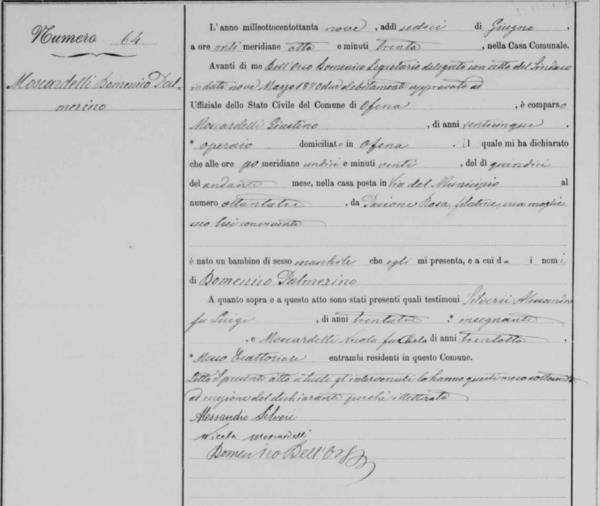 Numero 64
Moscardelli Domenico Pal-
merino
L'anno milleottocentottanta nove, addì sedici di Giugno,
a ore anti meridiane otto e minuti trenta, nella Casa Comunale.
Avanti di me Dell'Orso Domenico Segretario delegato con atto del Sindaco
in data nove Marzo 1880 debitamente approvato ad
Uffiziale dello Stato Civile del Comune di Ofena, è comparso
Moscardelli Giustino, di anni venticinque
operaio domiciliato in Ofena, il quale mi ha dichiarato
che alle ore po meridiane undici e minuti venti, del dì quindici
del andante mese, nella casa posta in Via del Municipio al
numero ottantatre, da Rosa, filatrice, sua moglie
seco lui convivente
è nato un bambino di sesso maschile che egli mi presenta, e a cui da i nomi
di Domenico Palmerino
A quanto sopra e a questo atto sono stati presenti quali testimoni Silverii Alessandro
fu Luigi, di anni trentatre, insegnante
e Moscardelli Nicola fu di anni trentotto
Messo Esattoriale entrambi residenti in questo Comune.
Letto il presente atto a tutti gl'intervenuti lo hanno questi meco sottoscritto
ad eccezione del dichiarante perchè illetterato
Alessandro Silveri
Nicola Moscardelli
Domenico Dell'Orso